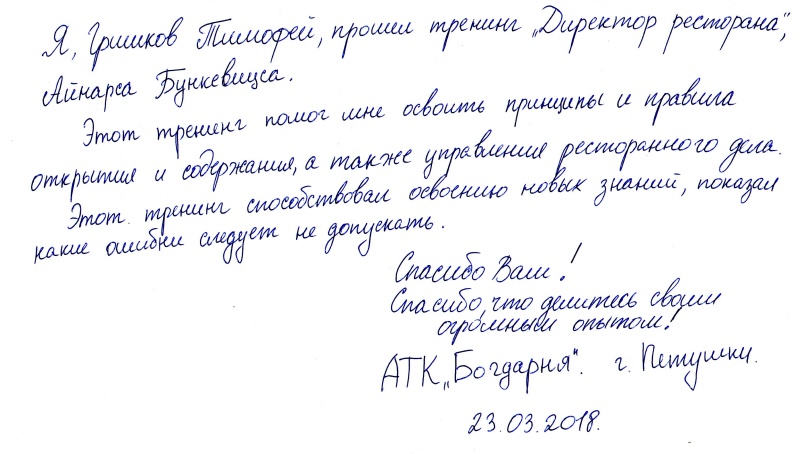 Я, Гришиков Тимофей, прошел тренинг „Директор ресторана",
Айнарса Бункевицса.
Этот тренинг помог мне освоить принципы и правила
открытия и содержания, а также управления ресторанного дела.
Этот тренинг способствовал освоению новых знаний, показал
какие ошибки следует не допускать.
Спасибо Вам!
Спасибо, что делитесь своим
огромным опытом!
АТК „Богдарня". г. Петушки.
23.03.2018.